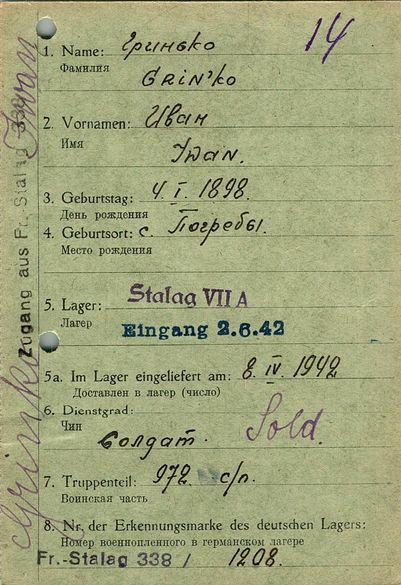 14
1. Name: Гринько
Фамилия
GRin'ko
2. Vornamen: Иван
Имя
Iwan.
3. Geburtstag: 4. I. 1898.
День рождения
4. Geburtsort: с. Погребы.
Место рождения
5. Lager: Stalag VII A
Лагер
Eingang 2.6.42
5a. Im Lager eingeliefert am: 8. IV. 1942
Доставлен в лагер (число)
6. Dienstgrad:
Чин
Солдат. Sold.
7. Truppenteil: 972 с/п.
Воинская часть
8. Nr. der Erkennungsmarke des deutschen Lagers:
Номер военнопленного в германском лагере
Fr.-Stalag 338 / 1208.
Zugang aus Fr. Stalag 338
Grinko Iwan